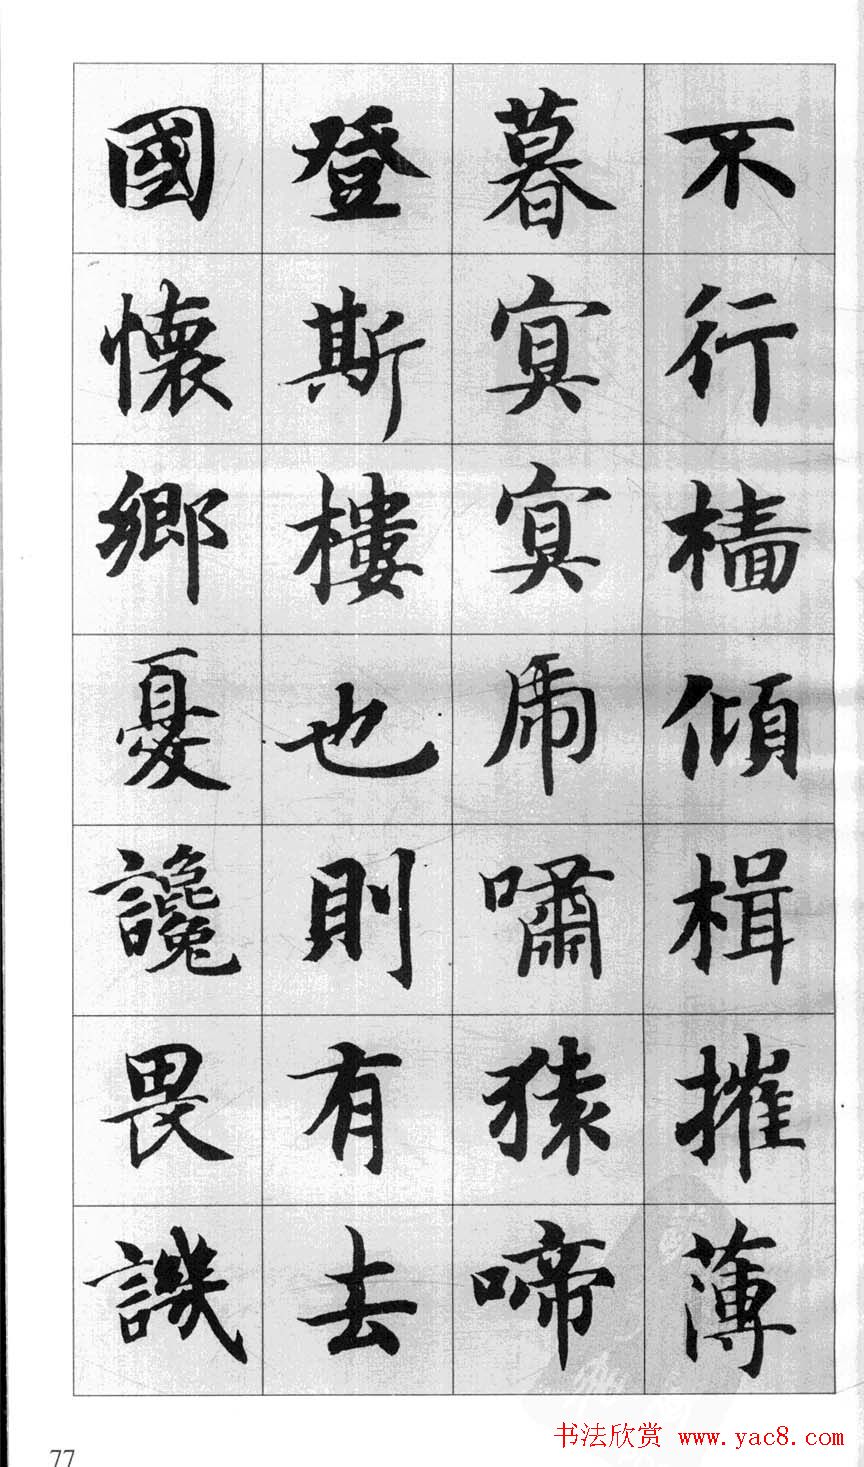 不行檣傾楫摧薄
暮冥冥虎嘯猿啼
登斯樓也則有去
國懷鄉憂讒畏譏
书法欣赏 www.yac8.com
77